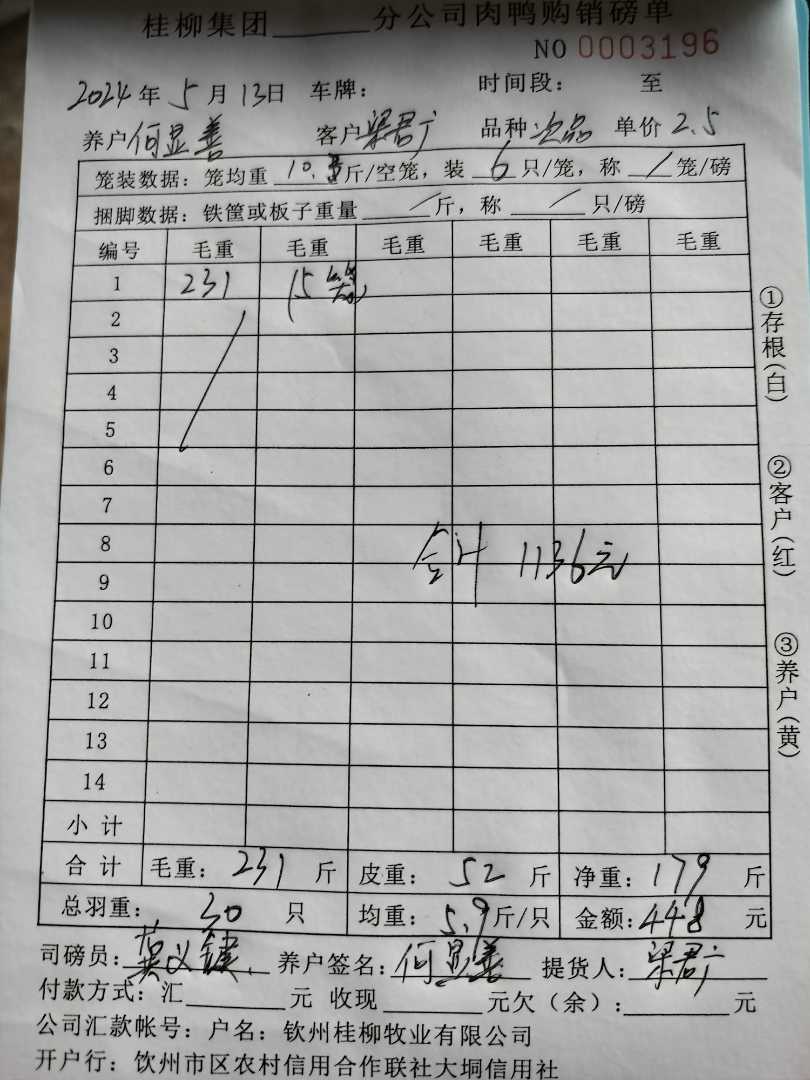 桂柳集团______分公司肉鸭购销磅单
NO 0003196
2024年5月13日 车牌： 时间段： 至
养户何显善 客户梁君广 品种次品 单价2.5
笼装数据：笼均重 10. 斤/空笼，装 6 只/笼，称 / 笼/磅
捆脚数据：铁筐或板子重量 / 斤，称 / 只/磅
编号 毛重 毛重 毛重 毛重 毛重 毛重
1 231 (5笼)
2
3
4
5
6
7
8
合计 1136元
9
10
11
12
13
14
小计
合计 毛重：231斤 皮重：52斤 净重：179斤
总羽重：30只 均重：5.9斤/只 金额：448元
司磅员： 养户签名：何显善 提货人：梁君广
付款方式：汇______元 收现______元欠（余）：______元
公司汇款帐号：户名：钦州桂柳牧业有限公司
开户行：钦州市区农村信用合作联社大垌信用社
①存根(白)
②客户(红)
③养户(黄)